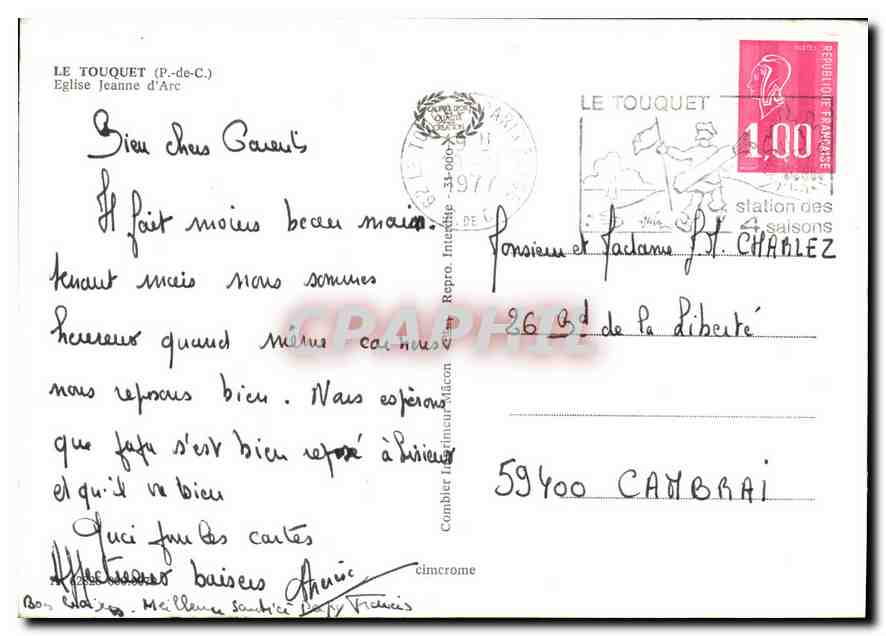 LE TOUQUET (P.-de-C.)
Eglise Jeanne d'Arc
Bien chers Parents
Il fait moins beau main-
tenant mais nous sommes
heureux quand même car nous
nous reposons bien. Nous espérons
que papa s'est bien reposé à Lisieux
et qu'il va bien
Merci pour les cartes
Affectueux baisers
Bons baisers. Meilleure santé Papy Francis
Combier Imprimeur Mâcon Repro. Interdite - 35-000
cimcrome
62 LE TOUQUET PARIS
1977
LE TOUQUET
station des
4 saisons
REPUBLIQUE FRANÇAISE
1,00
Monsieur et Madame J.M. CHARLEZ
26 Bd de la Liberté
59400 CAMBRAI
CPAPHIL